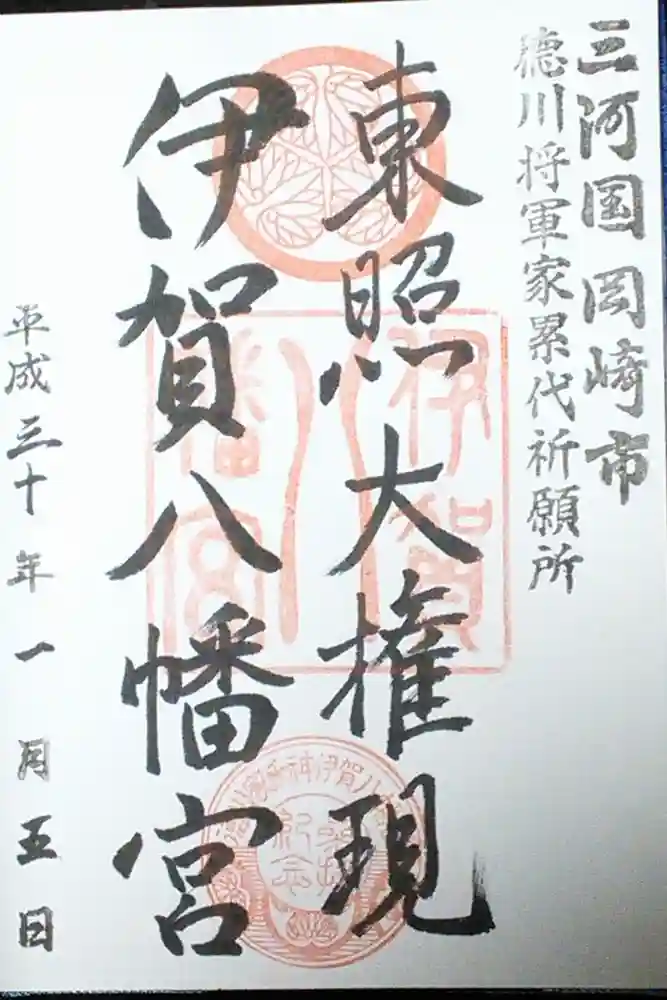 三河国岡崎市
徳川将軍家累代祈願所
東照大権現
伊賀八幡宮
平成三十年一月五日
伊賀
八
幡宮